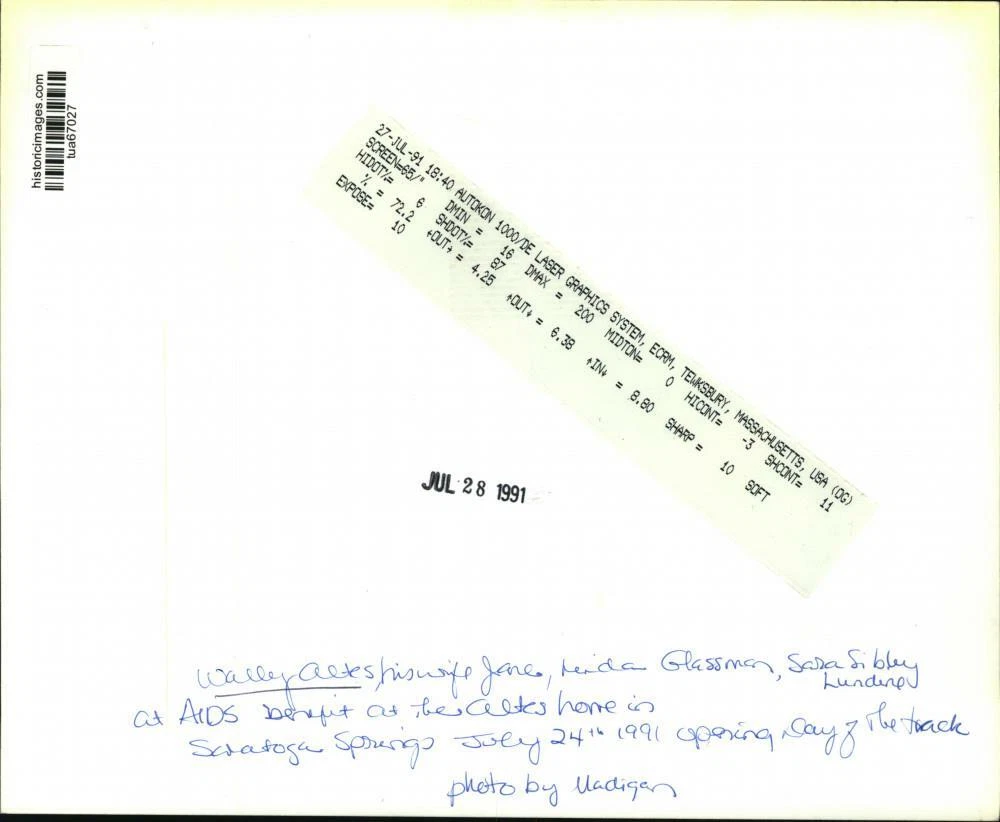 historicimages.com
tua67027
27-JUL-91 18:40 AUTOKON 1000/DE LASER GRAPHICS SYSTEM, ECRM, TEWKSBURY, MASSACHUSETTS, USA (OG)
SCREEN=65/" DMIN = 16 DMAX = 200 MIDTON= 0 HICONT= -3 SHCONT= 11
HIDOT%= 6 SHDOT%= 87
% = 72.2 +OUT+ = 4.25 +OUT+ = 6.38 +IN+ = 8.80 SHARP = 10 SOFT
EXPOSE= 10
JUL 28 1991
Wally Altes/his wife Jane, Glassman, Sara Sibley
Lundgren
at AIDS benefit at the Altes home in
Saratoga Springs July 24th 1991 opening Day of The track
photo by Madigan